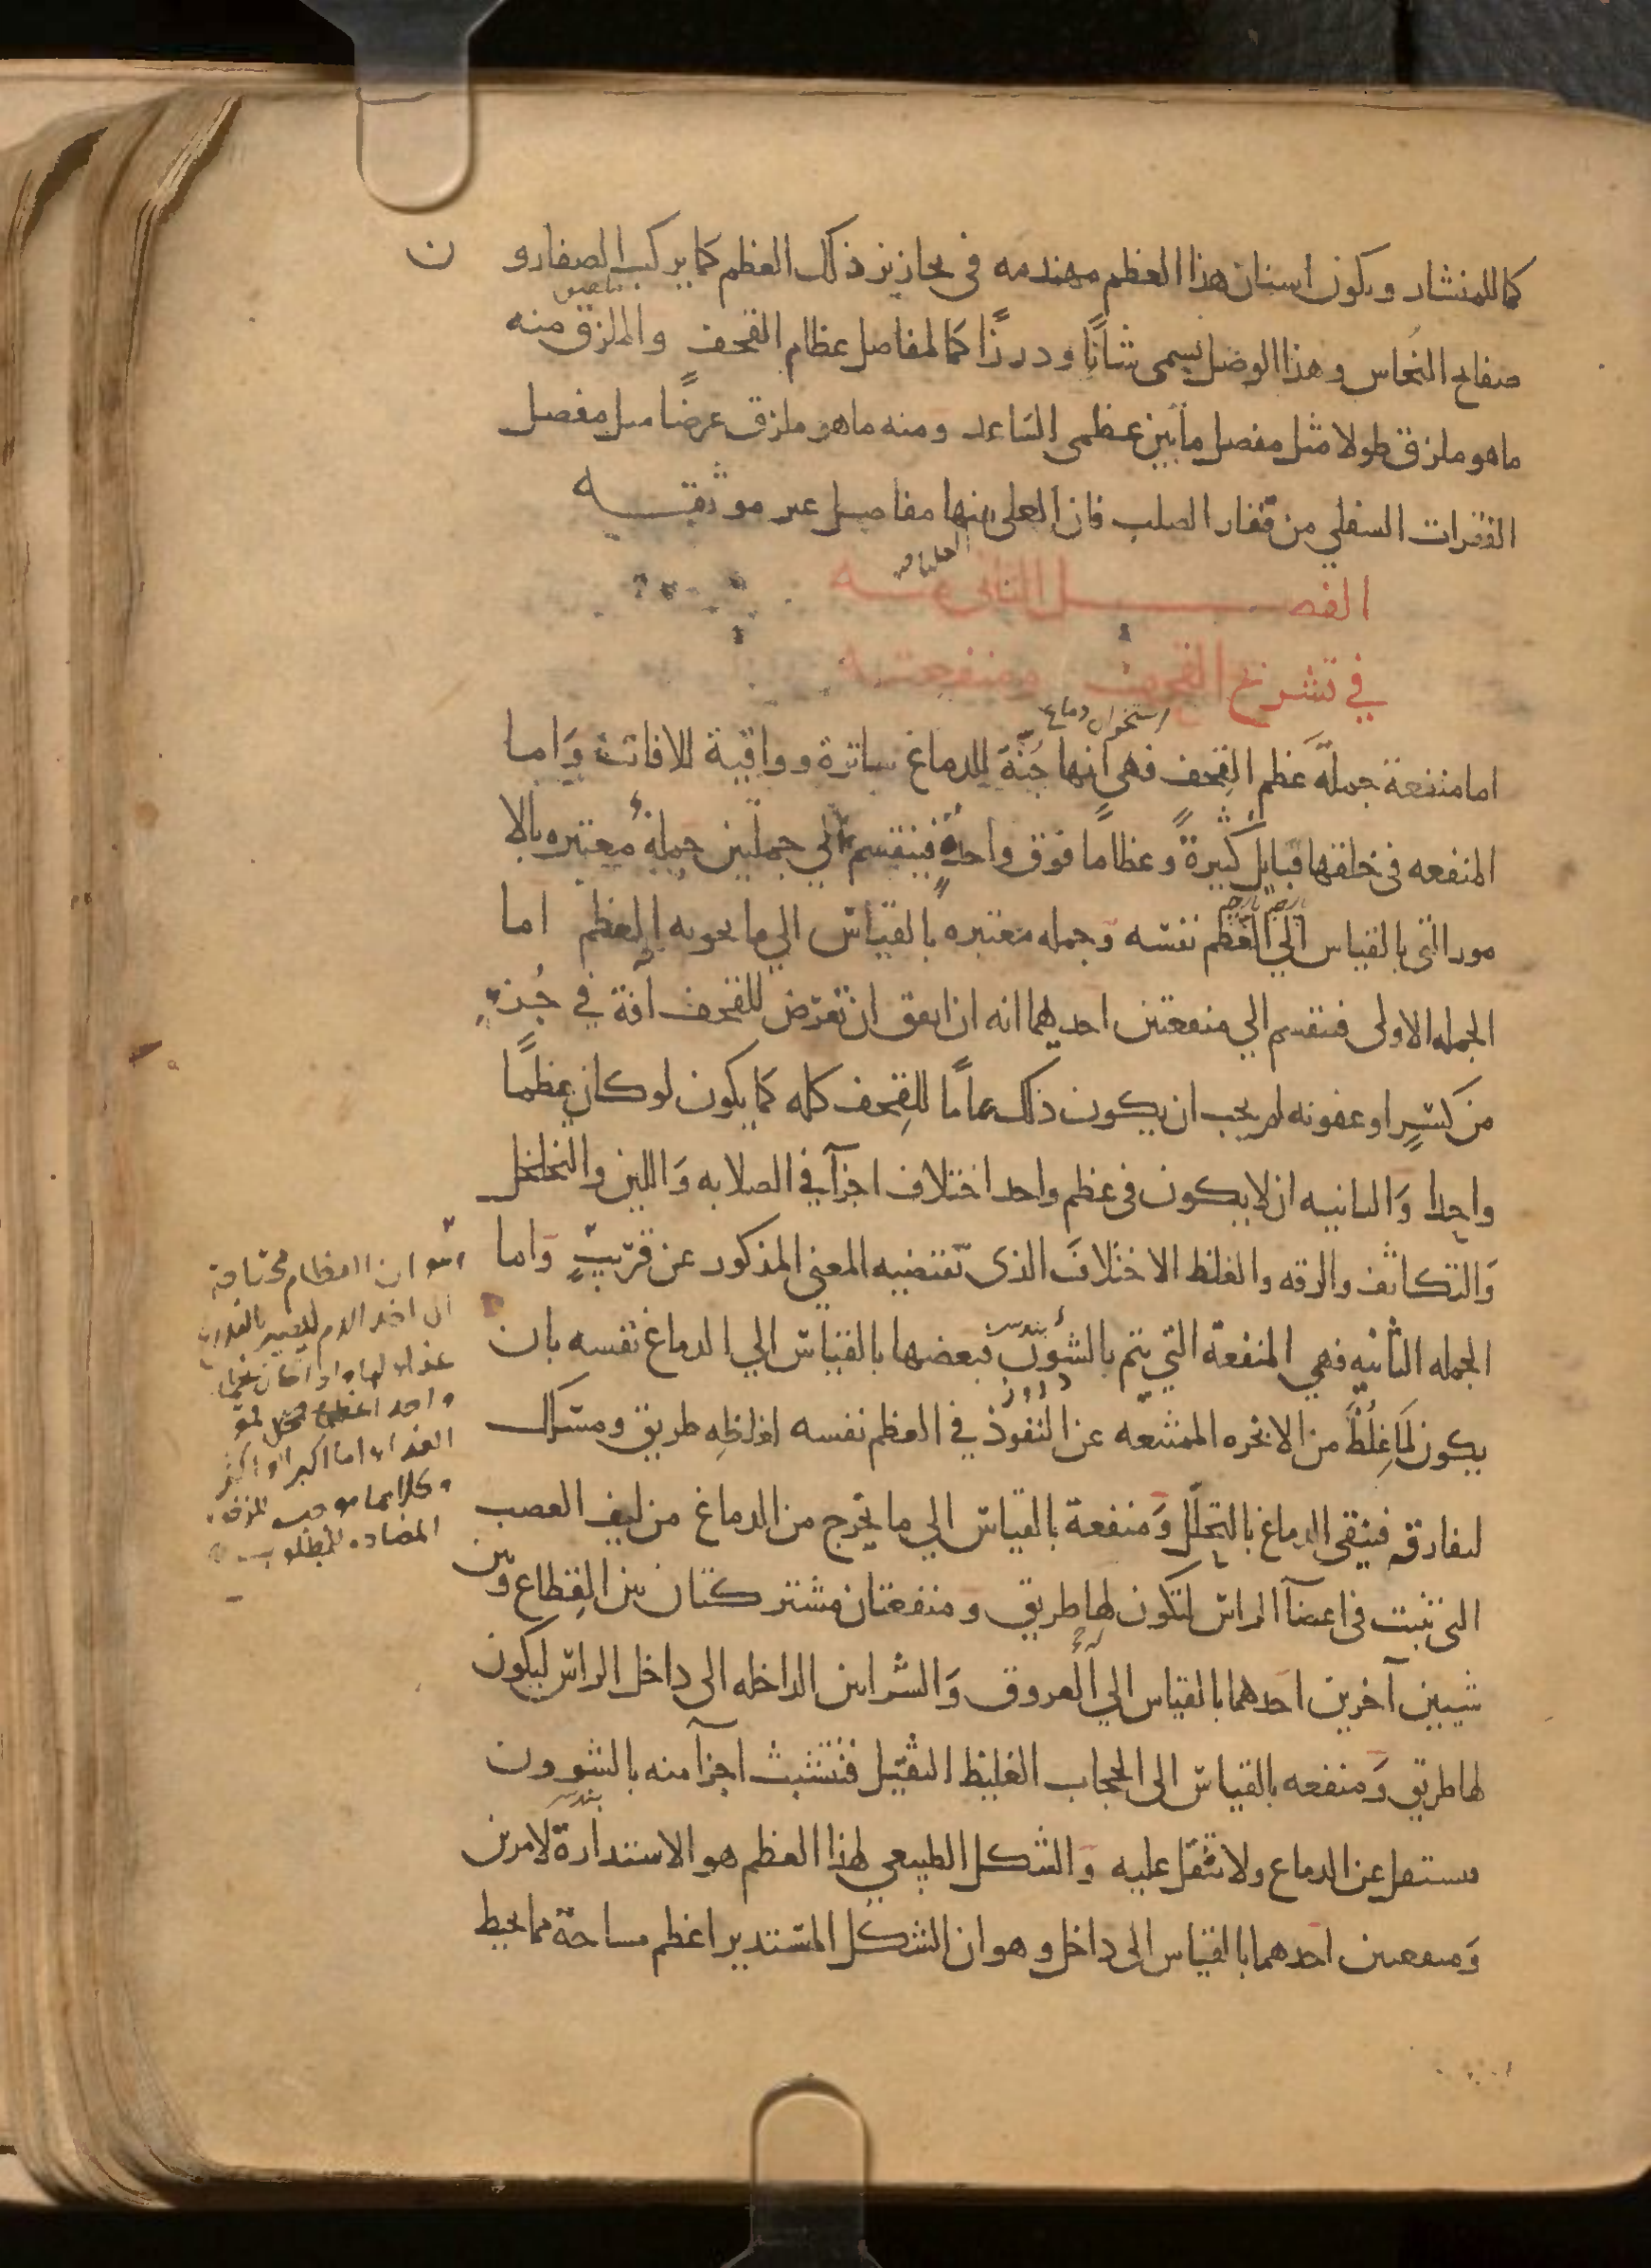 كما للمنشار ويكون اسنان هذا العظم مهندمه في تحازيز ذلك العظم كما يركب الصفارون
صفايح النحاس وهذا الوصل يسمى شأنًا ودرزًا كالمفاصل عظام القحف والملزق منه
ماهو ملزق طولا مثل مفصل مابين عظمي الساعد ومنه ماهو ملزق عرضًا مثل مفصل
الفقرات السفلي من فقار الصلب فان العلى منها مفاصل غير موثقه
الفصل الثاني
في تشريح القحف ومنفعته
استخوان دماغ
اما منفعة جملة عظم القِحف فهي انها جُنّة للدماغ ساترة وواقية للافات وَاما
المنفعه في خلقها قبايل كثيرةً وعظامًا فوق واحدةٍ فينقسم الي جملتين جملةٌ معتبره بالا
مور التي بالقياس الي العظم نفسه وجمله معتبره بالقياس الي ما يحويه العظم اما
الجمله الاولى فتنقسم الي منفعتين احديهما انه ان اتفق ان تعرّض للقحف آفة في جُزءٍ
من كسرٍ او عفونه لم يجب ان يكون ذلك عامًا للقِحف كله كما يكون لو كان عظمًا
واحدا وَالثانيه ان لايكون في عظم واحد اختلاف اجزآ في الصلابه وَاللين والتخلخل
وَالتكاثف والرقه والغلظ الاختلافَ الذي تقتضيه المعني المذكور عن قريبٍ وَاما
الجمله الثانيه فهي المنفعة التي يتم بالشؤن فبعضها بالقياس الي الدماغ نفسه بان
يكون لمَا غِلُظَ من الابخره الممتنعه عن النفوذ في العظم نفسه لغلظِه طريق ومسلك
ليفارقه فينقى الدماغ بالتحلّل وَمنفعة بالقياس الي ما يخرج من الدماغ من ليف العصب
التي تنبت في اعضآ الراس لتكون لها طريق ومنفعتان مشتركتان بين القِطاع وبين
شيئين آخرين احدهما بالقياس الي العروق وَالشرايين الداخله الى داخل الراس ليكون
لها طريق وَمنفعه بالقياس الى الحجاب الغليظ الثقيل فتتشبث اجزآ منه بالشوون
فيستقل عن الدماغ ولا تثقل عليه وَالشكل الطبيعي لهذا العظم هو الاستدارة لامرين
وَمنفعتين احدهما باالقياس الى داخل وهو ان الشكل المستدير اعظم مساحة مما يحيط
ان العظام محتاجة
الى اخذ الدم ليصير بالتدريج
غذاء لها واذا كان عظما
واحد
الغذاء اما اكبر او اكثر
وكلاهما موجب
المضاده للمطلوب